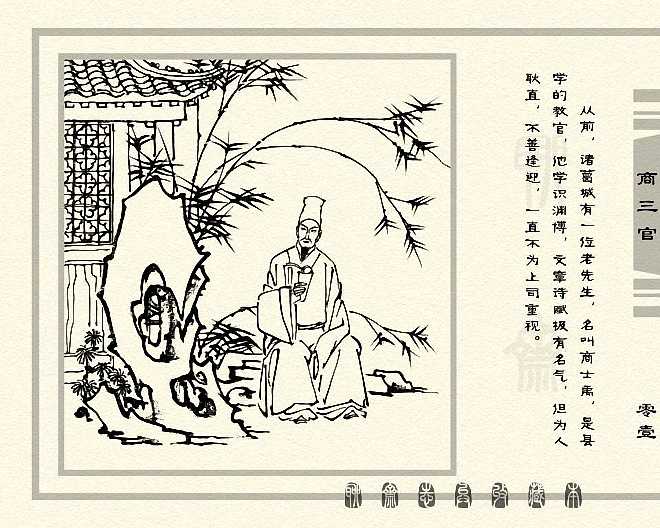 从前，诸葛城有一位老先生，名叫商士禹，是县
学的教官，他学识渊博，文章诗赋极有名气，但为人
耿直，不善逢迎，一直不为上司重视。
商三官
零壹